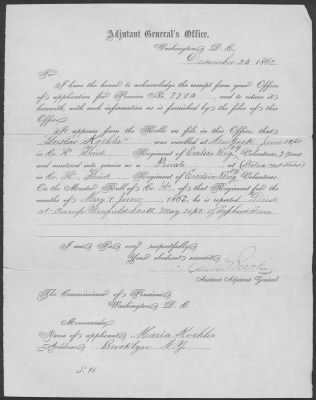 Adjutant General's Office,
Washington, D. C.
December 24, 1862
Sir:
I have the honor to acknowledge the receipt from your Office
of application for Pension No. 7754 and to return it
herewith, with such information as is furnished by the files of this
Office.
It appears from the Rolls on file in this Office, that
"Gustav Koehler" was enrolled at New York June 1861
in Co. "H" Third Regiment of Excelsior Brig. Volunteers, 3 Years
and mustered into service as a Private at
in Co. "H" Third Regiment of Excelsior Brig. Volunteers.
On the Muster Roll of Co. "H" of that Regiment for the
months of May & June, 1862, he is reported "Died
at Camp Winfield Scott, May 24th of Typhoid Fever
I am Sir very respectfully
Your obedient servant
Assistant Adjutant General
The Commissioner of Pensions
Washington D. C.
Memoranda:
Name of applicant Maria Koehler
Address Brooklyn N.Y.